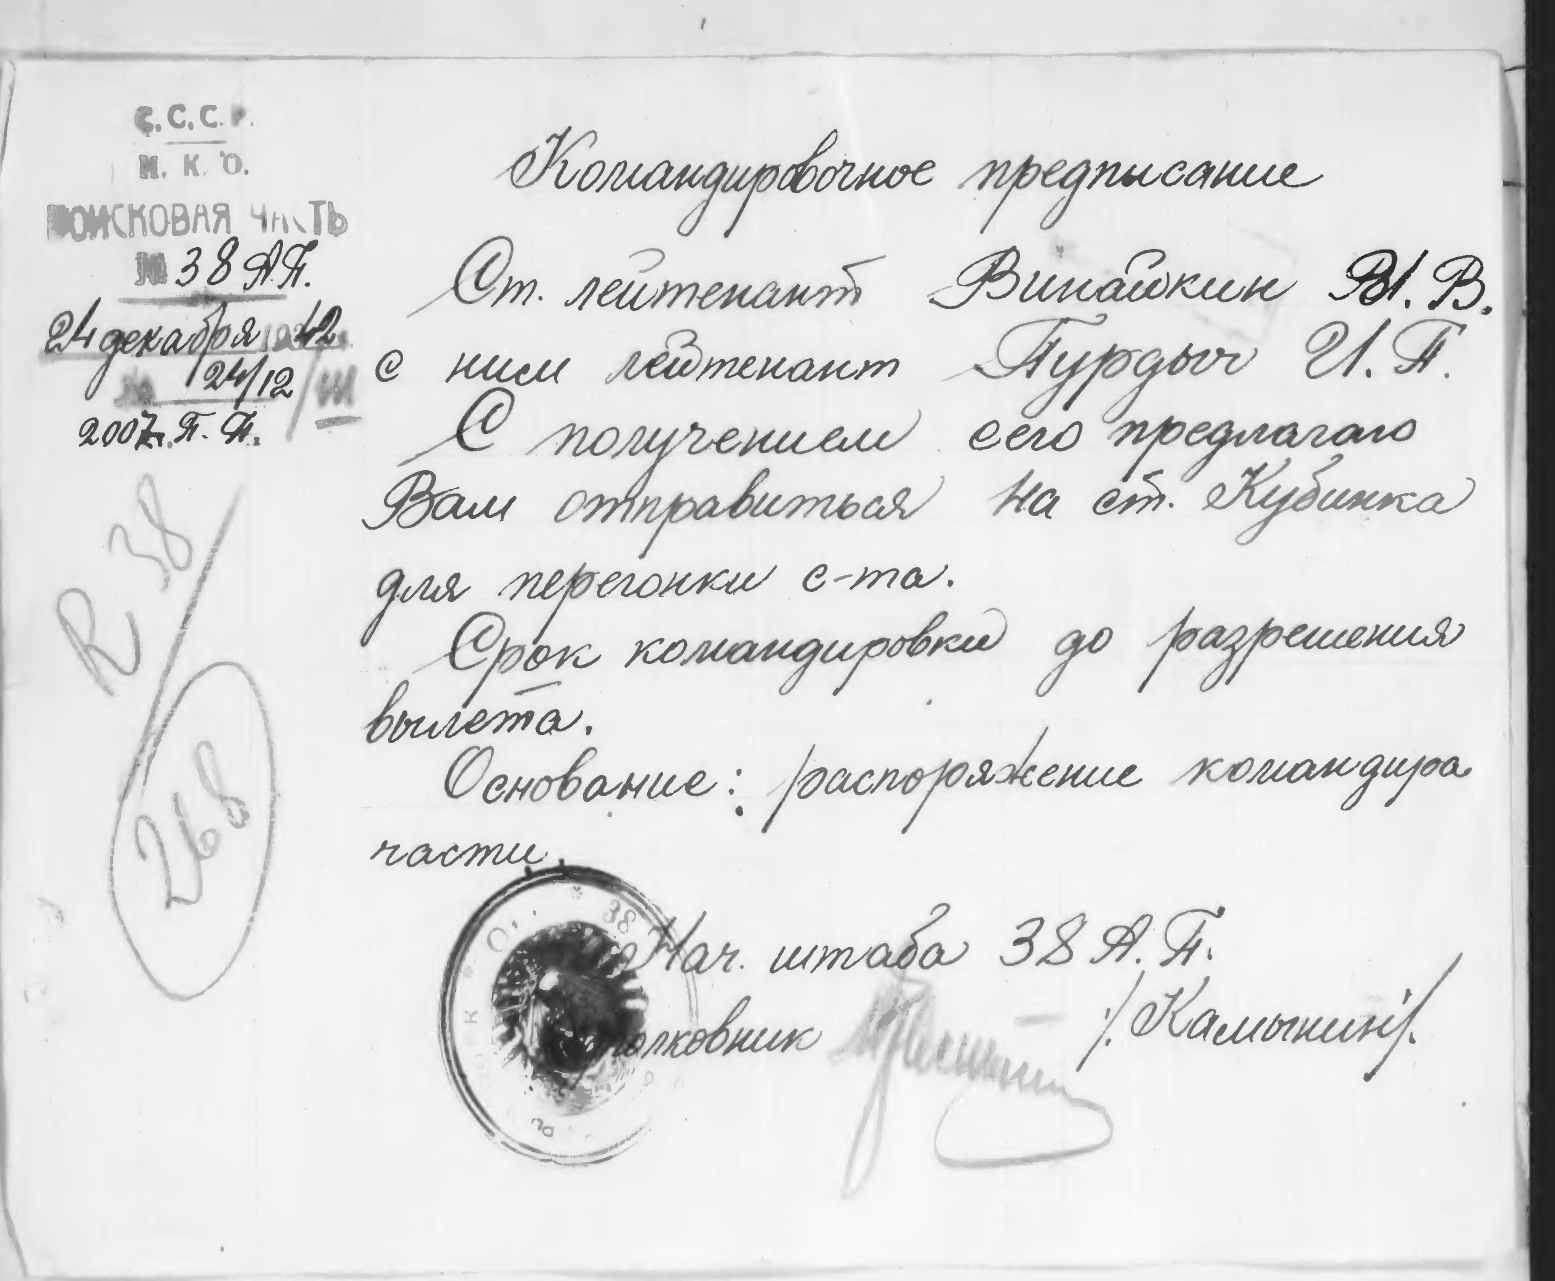 С.С.С.Р.
Н.К.О.
ВОИСКОВАЯ ЧАСТЬ
№ 38 А.П.
24 декабря 1942
24/12
2007. П. П.
R 38
268
Командировочное предписание
Ст. лейтенант Винайкин И. В.
с ним лейтенант Пурдыч И. П.
С получением сего предлагаю
Вам отправиться на ст. Кубинка
для перегонки с-та.
Срок командировки до разрешения
вылета.
Основание: распоряжение командира
части.
38
Нач. штаба 38 А. П.
Подполковник /Камынин/.